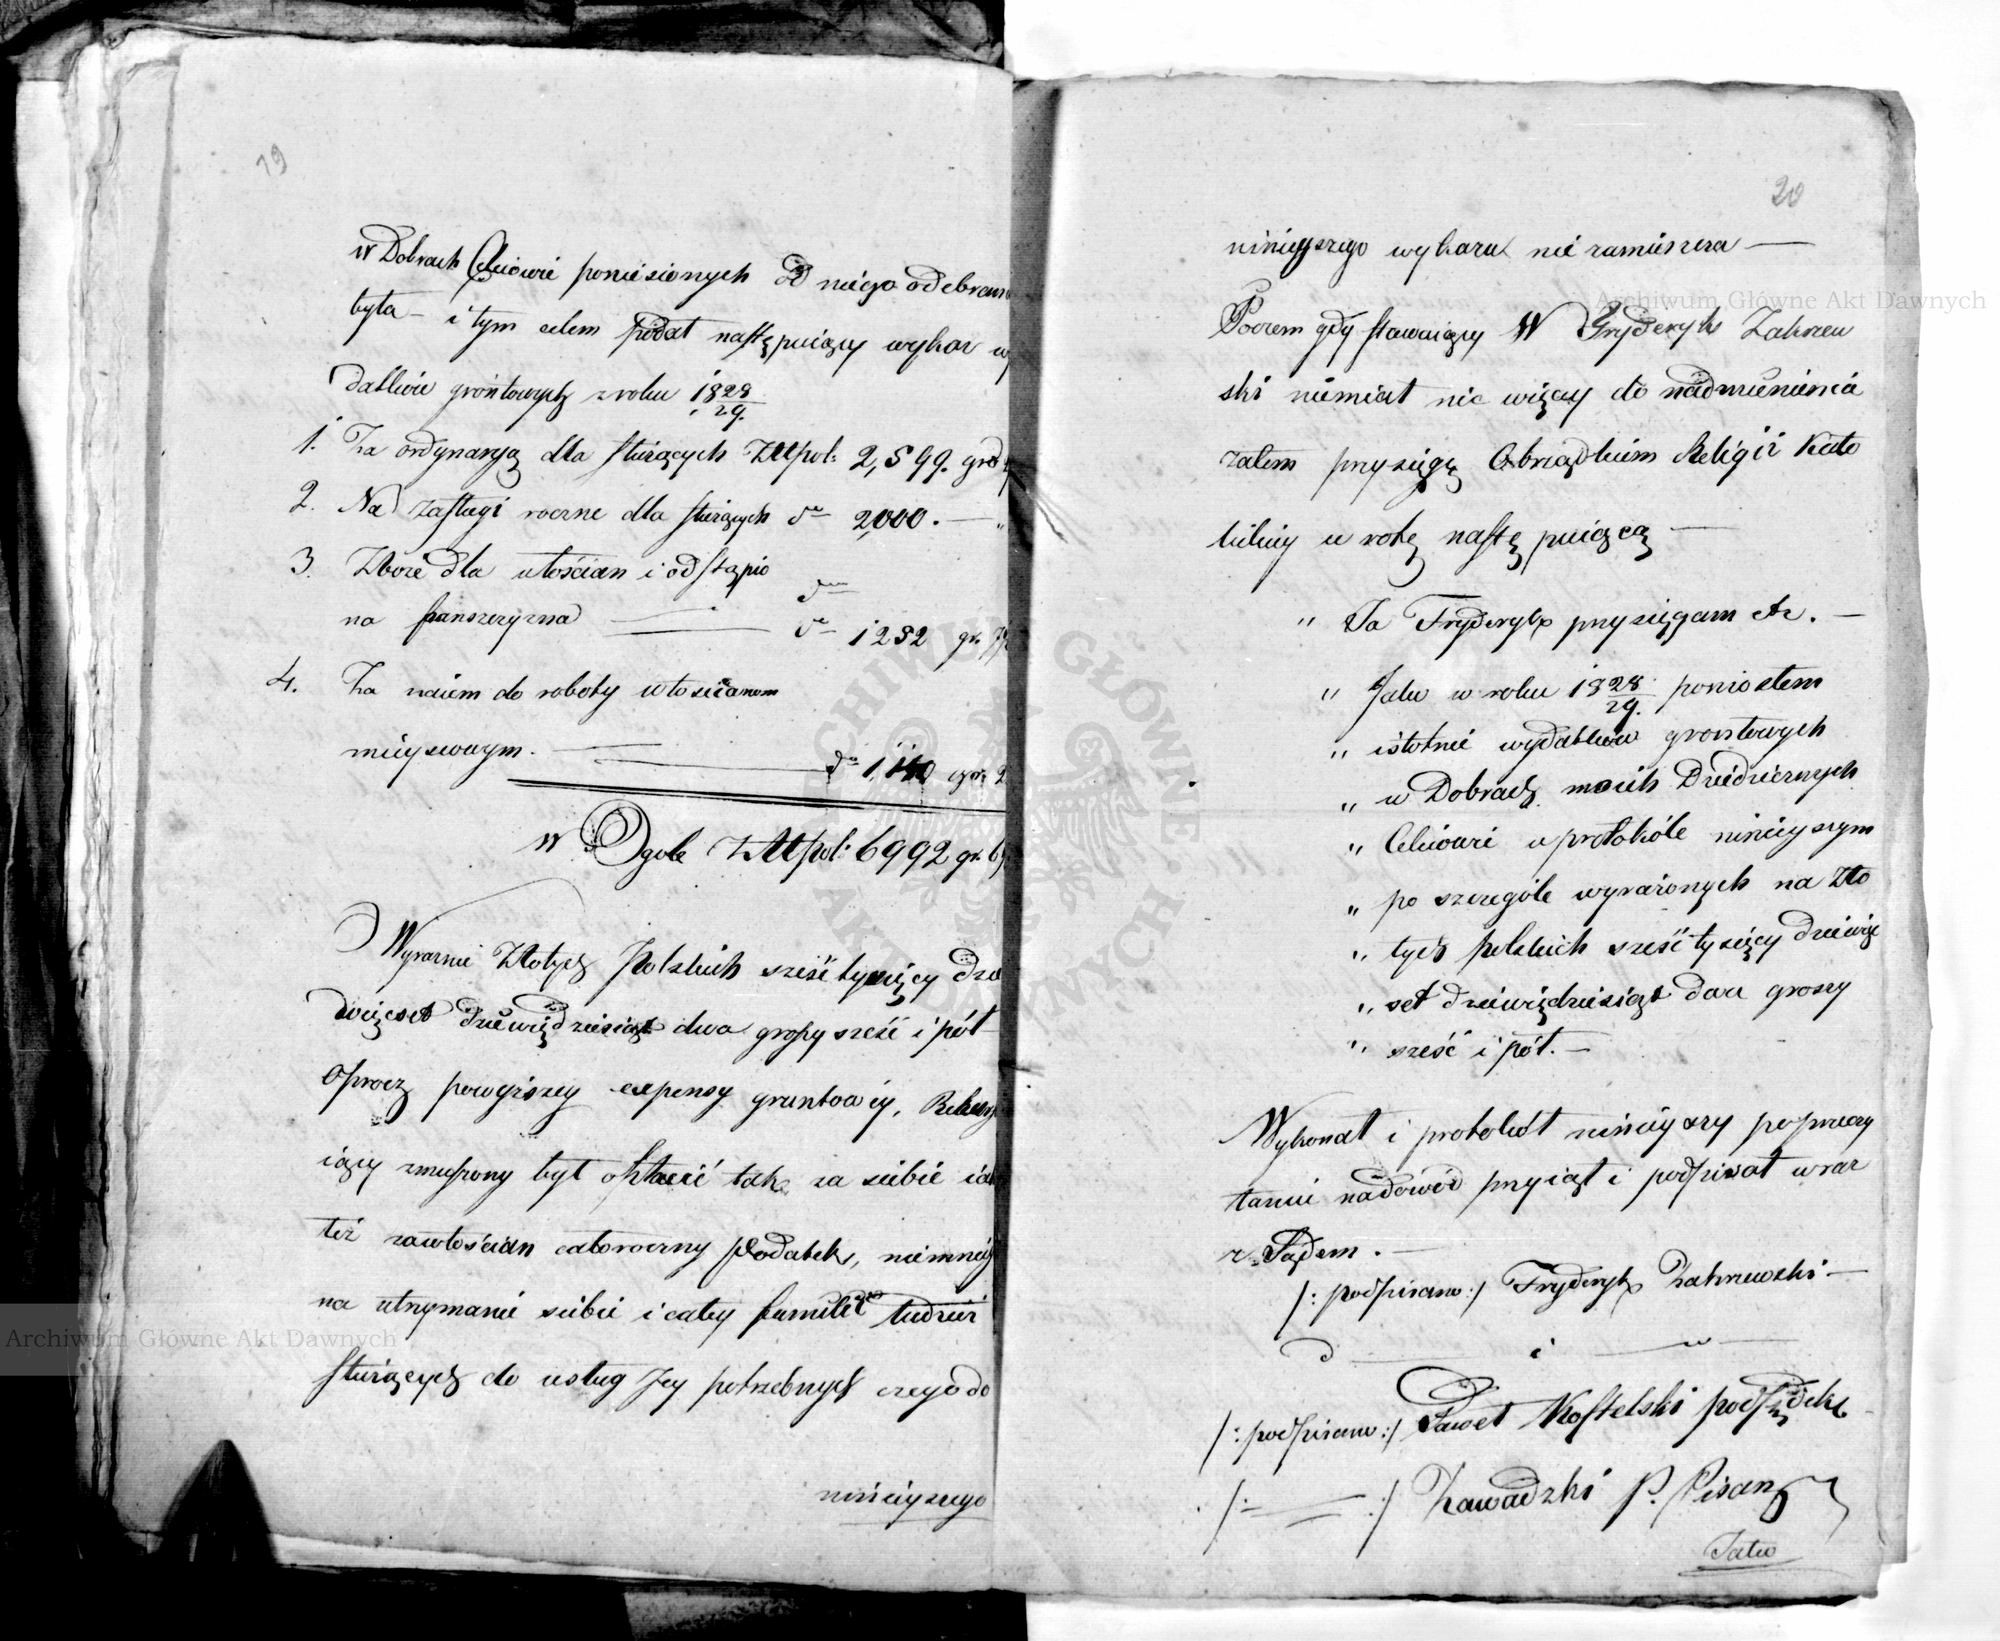 19
w Dobrach Celiowie poniesionych od niego odebrana
była – i tym celem podał następuiący wykaz wy
datków grontowych z roku 1828/29.
1. Za ordynaryą dla służących ZMpol: 2,599. gro
2. Na zasługi roczne dla służących do 2,000. —
3. Zboże dla włościan i odstąpio
na pańszczyzna — do 1252 gr.
4. Za naiem do roboty włościanom
mieyscowym. — do 1,140 gr. 2
w Ogole ZMpol: 6992 gr. 6
Wyraznie Złotych Polskich sześć tysięcy dzie
więcset dziewiędziesiąt dwa groszy sześć i pół
Oprocz powyższey expensy gruntowey,
iący zmuszony był opłacić tak za siebie iak
też za włościan całoroczny podatek, niemniey
na utrzymanie siebie i całey familii tudzież
służących do usług Jey potrzebnych czego do
ninieyszego
20
ninieyszego wykazu nie zamieszcza —
Poczem gdy stawaiący W Fryderyk Zakrzew
ski niemiał nic więcey do nadmienienia
zatem przysięgę Obrządkiem Religii Kato
lickiey w rotę następuiącą —
" Ja Fryderyk przysięgam etc. —
" Jako w roku 1828/29. poniosłem
" istotnie wydatków grontowych
" w Dobrach moich Dziedzicznych
" Celiowie w protokóle ninieyszym
" po szczególe wyrażonych na Zło
" tych polskich sześć tysięcy dziewię
" set dziewiędziesiąt dwa groszy
" sześć i pół. —
Wykonał i protokół ninieyszy po przeczy
taniu na dowód przyiął i podpisał wraz
z Sądem. —
/: podpisano :/ Fryderyk Zakrzewski —
d — i — w —
/: podpisano :/ Paweł Kostelski podsędek
/: — :/ Zawadzki P. Pisarz
Jako
Archiwum Główne Akt Dawnych
Archiwum Główne Akt Dawnych
ARCHIWUM GŁÓWNE AKT DAWNYCH